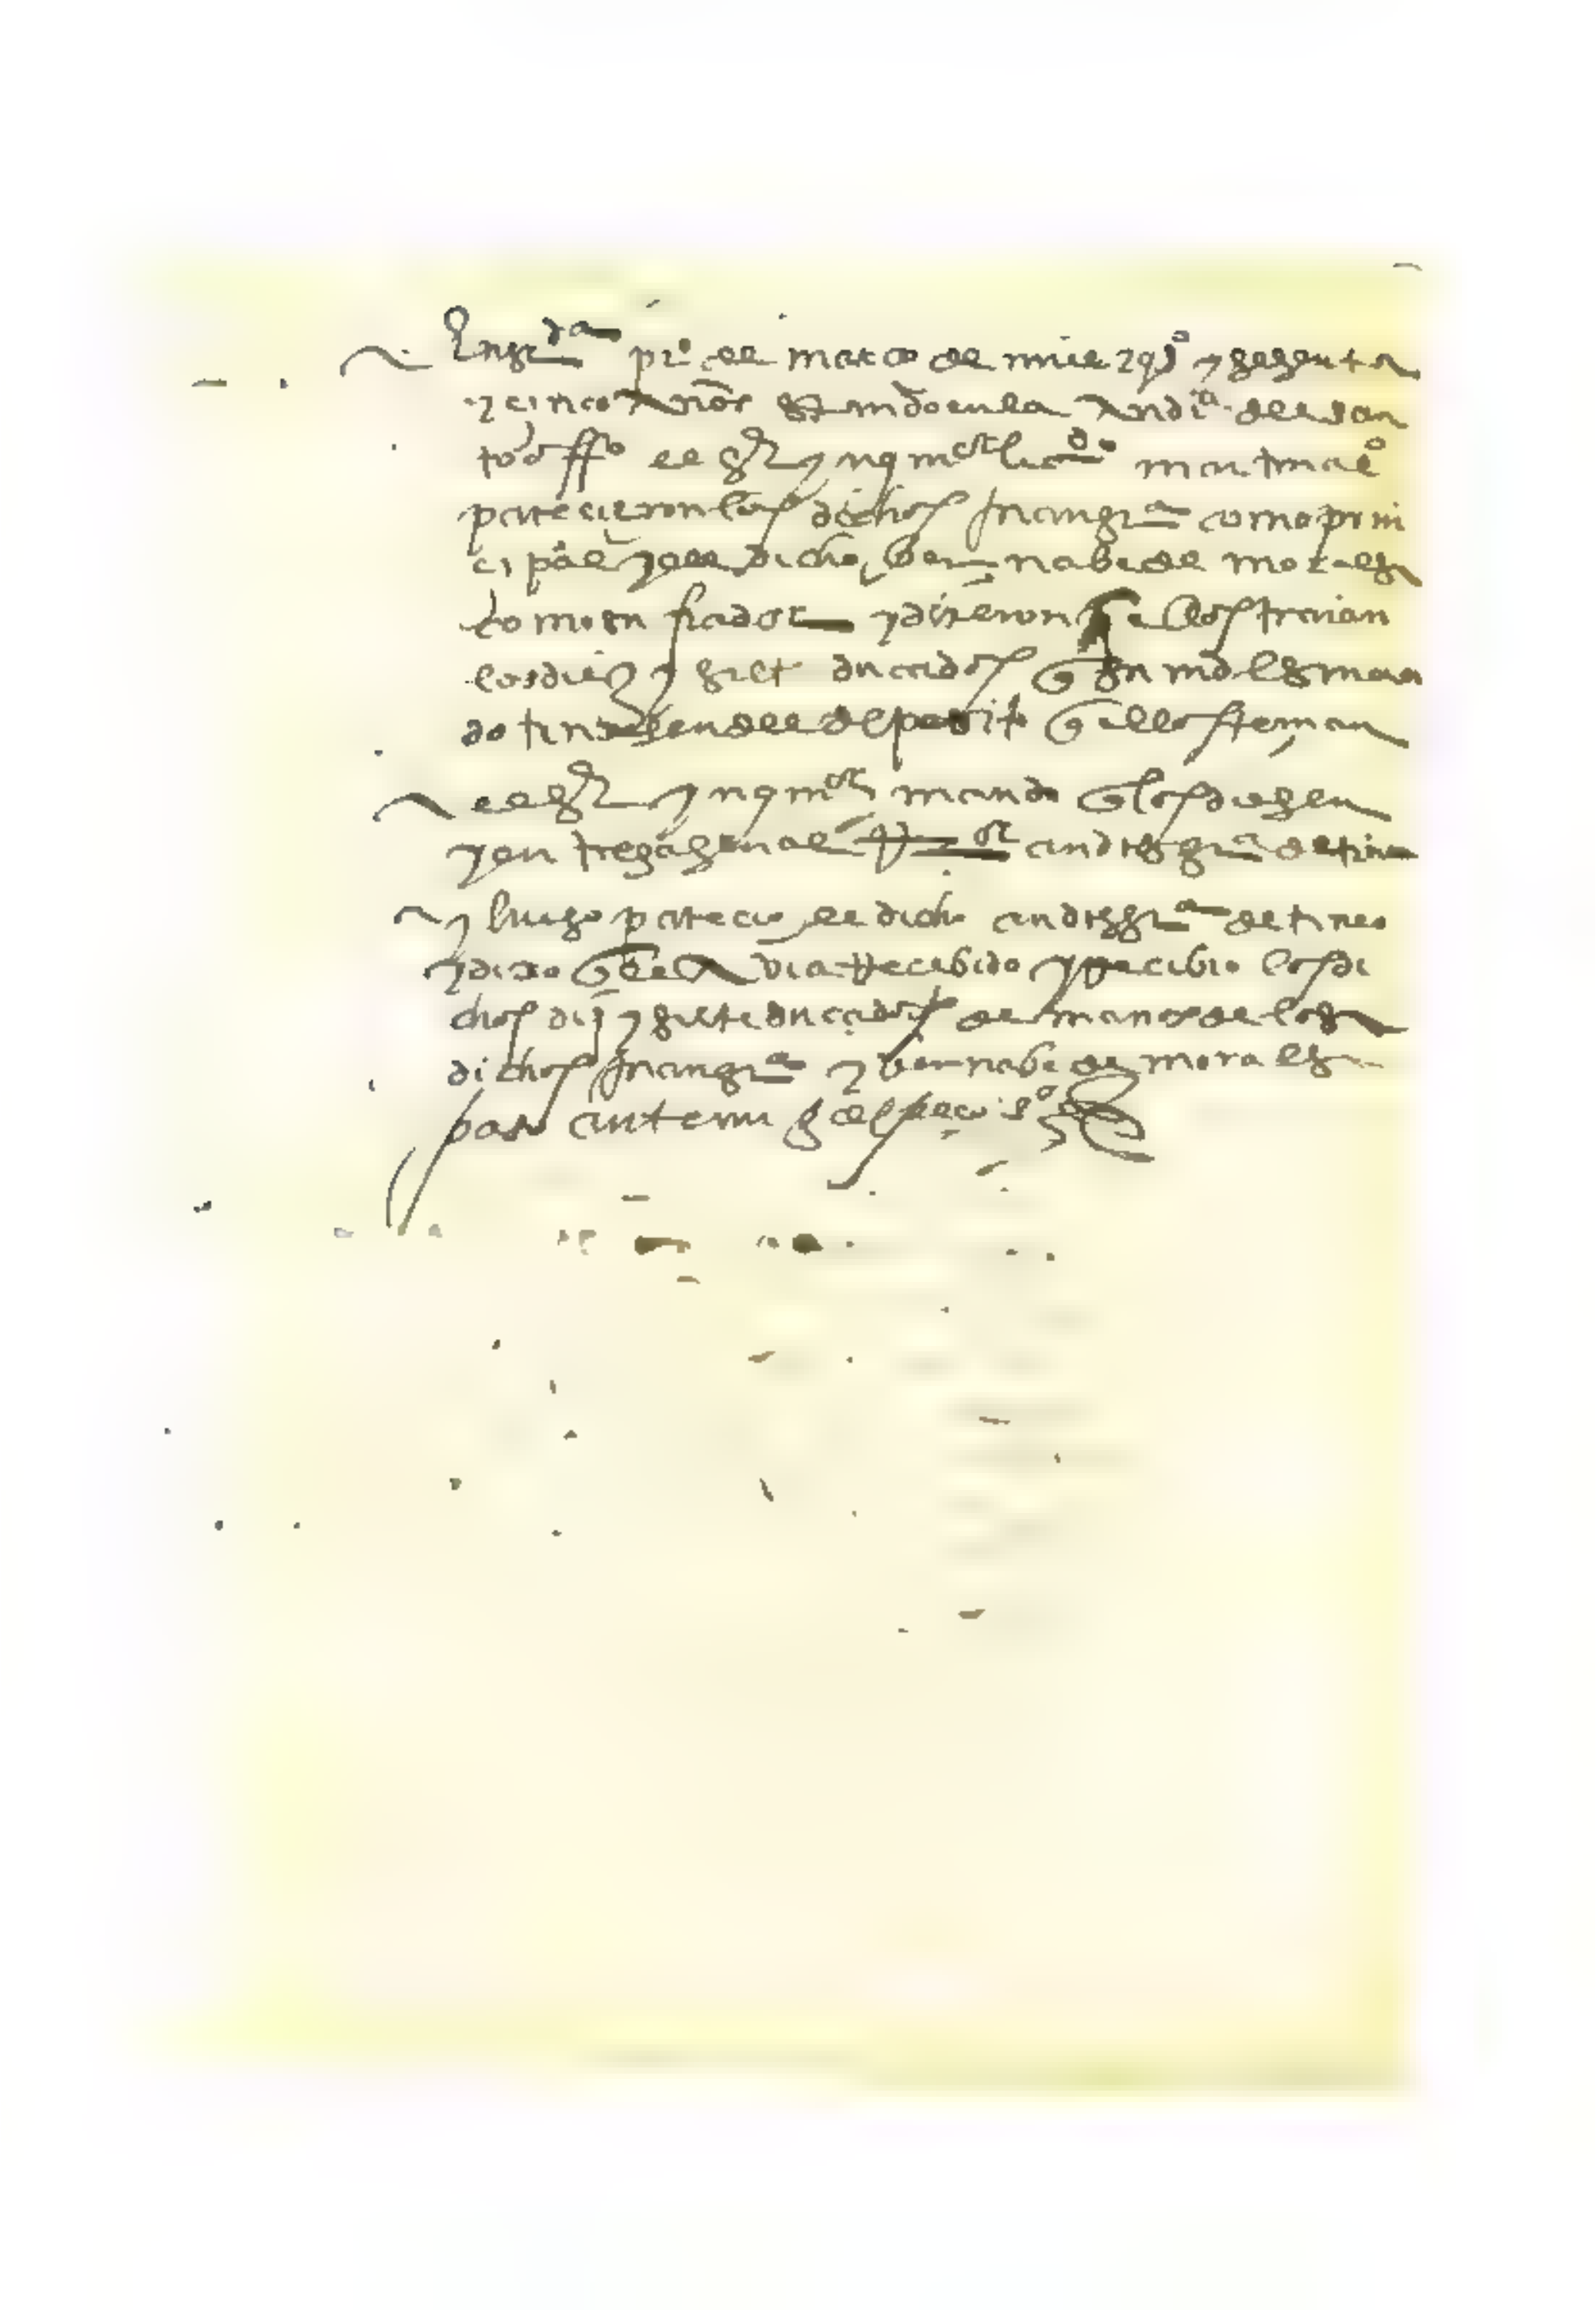 En gr.da pr.o de março de mill e qs.o y sesenta
y cinco años estando en la audi.a del san
to off.o el s.r ynqui.or lic.do martin al.o
parecieron los dichos juan gr.a como prin
cipal y el dicho bernabe de morales
como su fiador y dixeron q ellos traian
los diez y siet ducados q su md les man
do truxesen del deposito q ellos tenian
el s.r ynqui.or mando q los diesen
y entregasen al andres gr.a de tineo
y luego parecio el dicho andres gr.a de tineo
y dixo q el avia rrecebido y rrecibio los di
chos diez y siete ducados de manos de los
dichos juan gr.a y bernabe de morales
paso ante mi